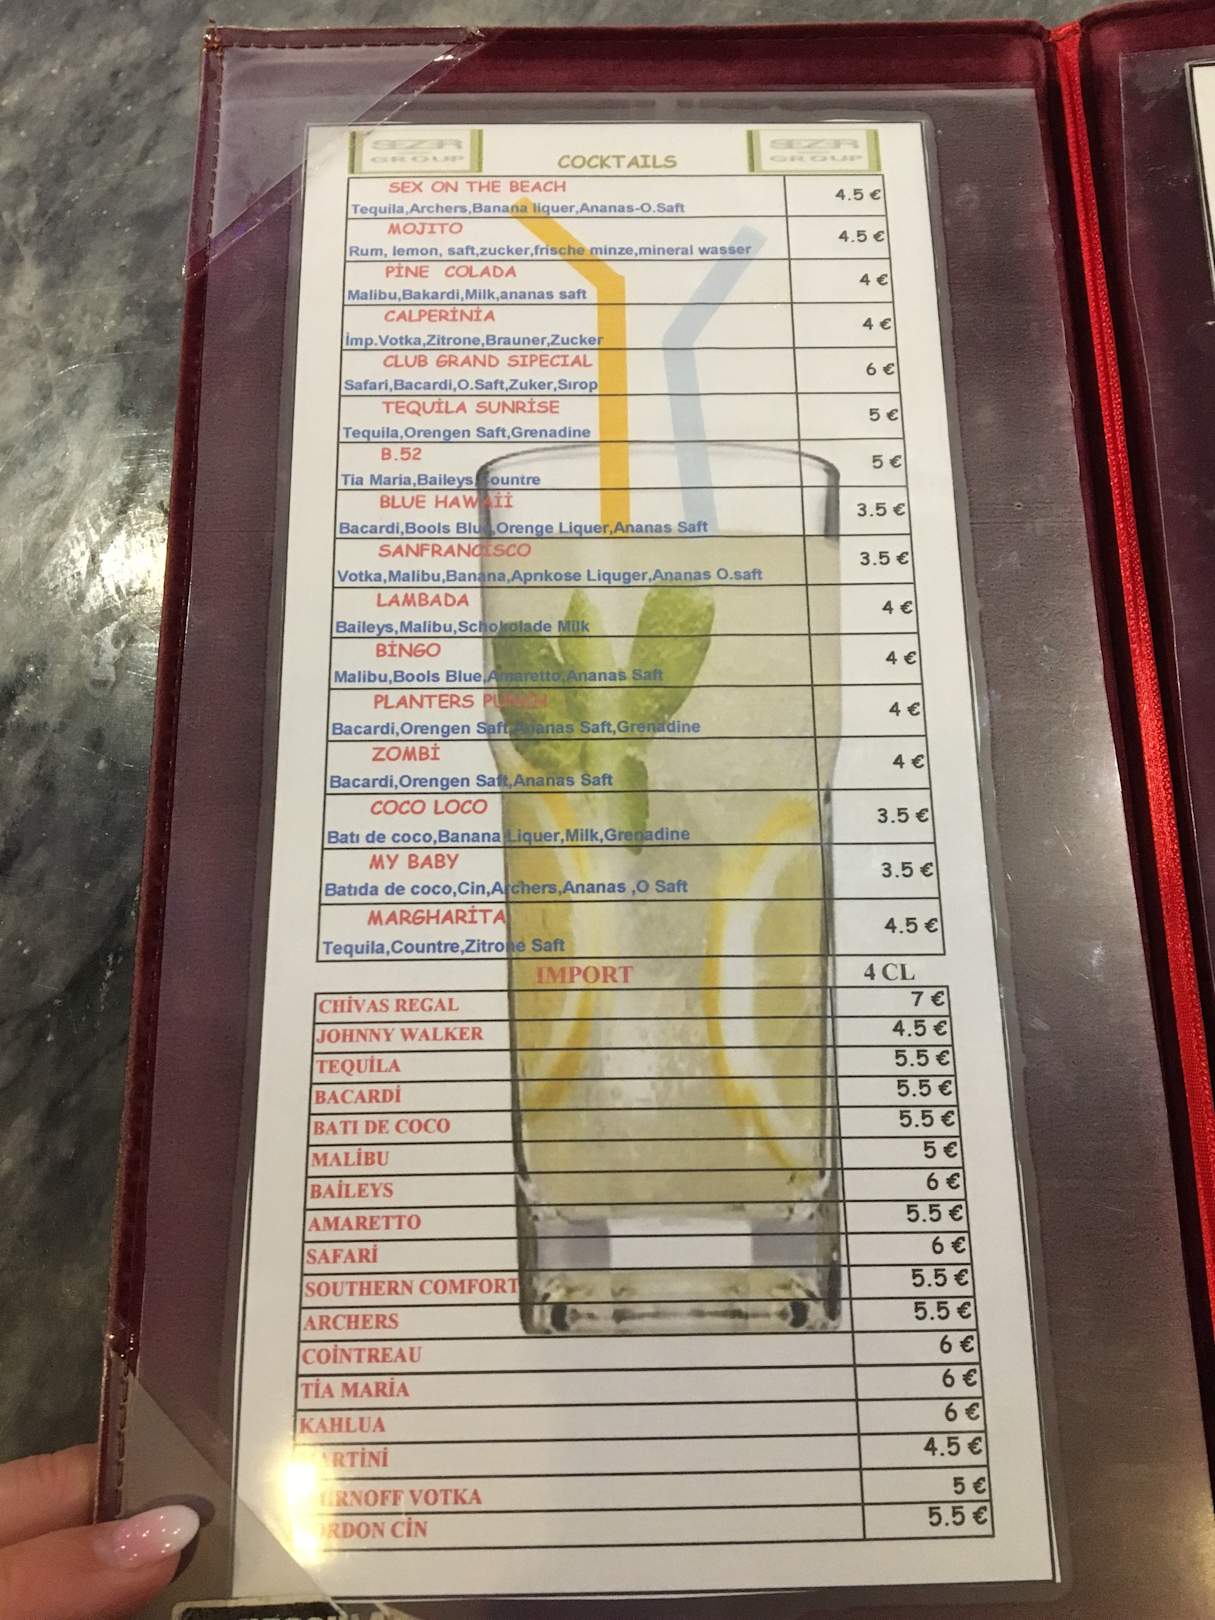 SEZER GROUP
SEZER GROUP
COCKTAILS
SEX ON THE BEACH 4.5 €
Tequila,Archers,Banana liquer,Ananas-O.Saft
MOJITO 4.5 €
Rum, lemon, saft,zucker,frische minze,mineral wasser
PİNE COLADA 4 €
Malibu,Bakardi,Milk,ananas saft
CALPERİNİA 4 €
İmp.Votka,Zitrone,Brauner,Zucker
CLUB GRAND SIPECIAL 6 €
Safari,Bacardi,O.Saft,Zuker,Sırop
TEQUİLA SUNRİSE 5 €
Tequila,Orengen Saft,Grenadine
B.52 5 €
Tia Maria,Baileys,Countre
BLUE HAWAİİ 3.5 €
Bacardi,Bools Blue,Orenge Liquer,Ananas Saft
SANFRANCİSCO 3.5 €
Votka,Malibu,Banana,Aprıkose Liquger,Ananas O.saft
LAMBADA 4 €
Baileys,Malibu,Schokolade Milk
BİNGO 4 €
Malibu,Bools Blue,Amaretto,Ananas Saft
PLANTERS PUNCH 4 €
Bacardi,Orengen Saft,Ananas Saft,Grenadine
ZOMBİ 4 €
Bacardi,Orengen Saft,Ananas Saft
COCO LOCO 3.5 €
Batı de coco,Banana Liquer,Milk,Grenadine
MY BABY 3.5 €
Batıda de coco,Cin,Archers,Ananas ,O Saft
MARGHARİTA 4.5 €
Tequila,Countre,Zitrone Saft
IMPORT 4 CL
CHİVAS REGAL 7 €
JOHNNY WALKER 4.5 €
TEQUİLA 5.5 €
BACARDİ 5.5 €
BATI DE COCO 5.5 €
MALİBU 5 €
BAİLEYS 6 €
AMARETTO 5.5 €
SAFARİ 6 €
SOUTHERN COMFORT 5.5 €
ARCHERS 5.5 €
COİNTREAU 6 €
TİA MARİA 6 €
KAHLUA 6 €
RTİNİ 4.5 €
RNOFF VOTKA 5 €
RDON CİN 5.5 €